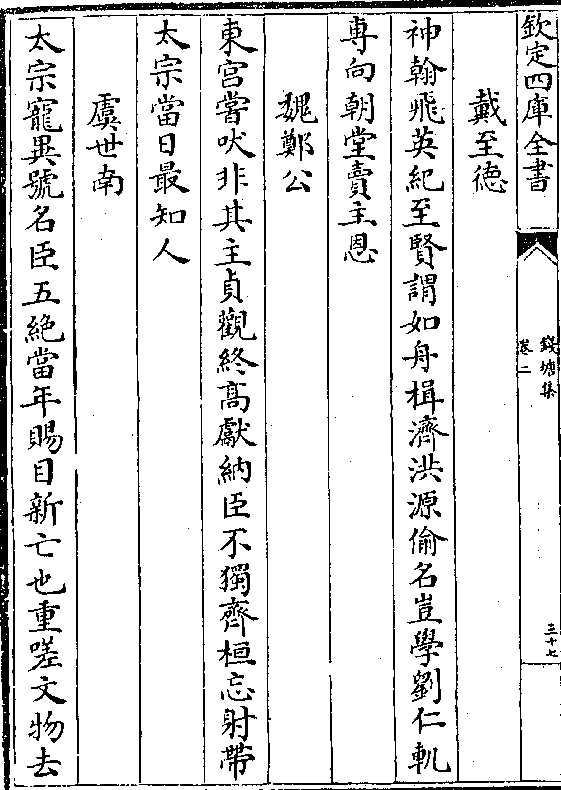 欽定四庫全書
錢塘集
卷二
三十七
戴至德
神翰飛英紀至賢謂如舟楫濟洪源偷名豈學劉仁軌
專向朝堂賣主恩
魏鄭公
東宮嘗吠非其主貞觀終高獻納臣不獨齊桓忘射帶
太宗當日最知人
虞世南
太宗寵異號名臣五絶當年賜目新亡也重嗟文物去